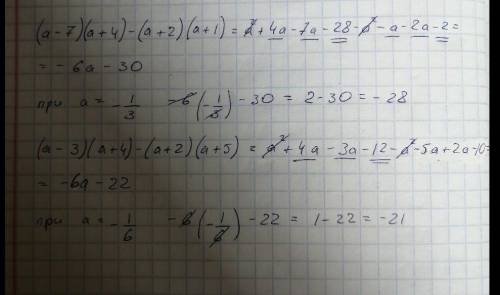 (a-7)(a+4)-(a+2)(a+1) = a²+4a-7a-28-a²-a-2a-2=
= -6a-30
при a = -1/3 -6(-1/3)-30 = 2-30 = -28
(a-3)(a+4)-(a+2)(a+5) = a²+4a-3a-12-a²-5a+2a-10=
= -6a-22
при a = -1/6 -6(-1/6)-22 = 1-22 = -21